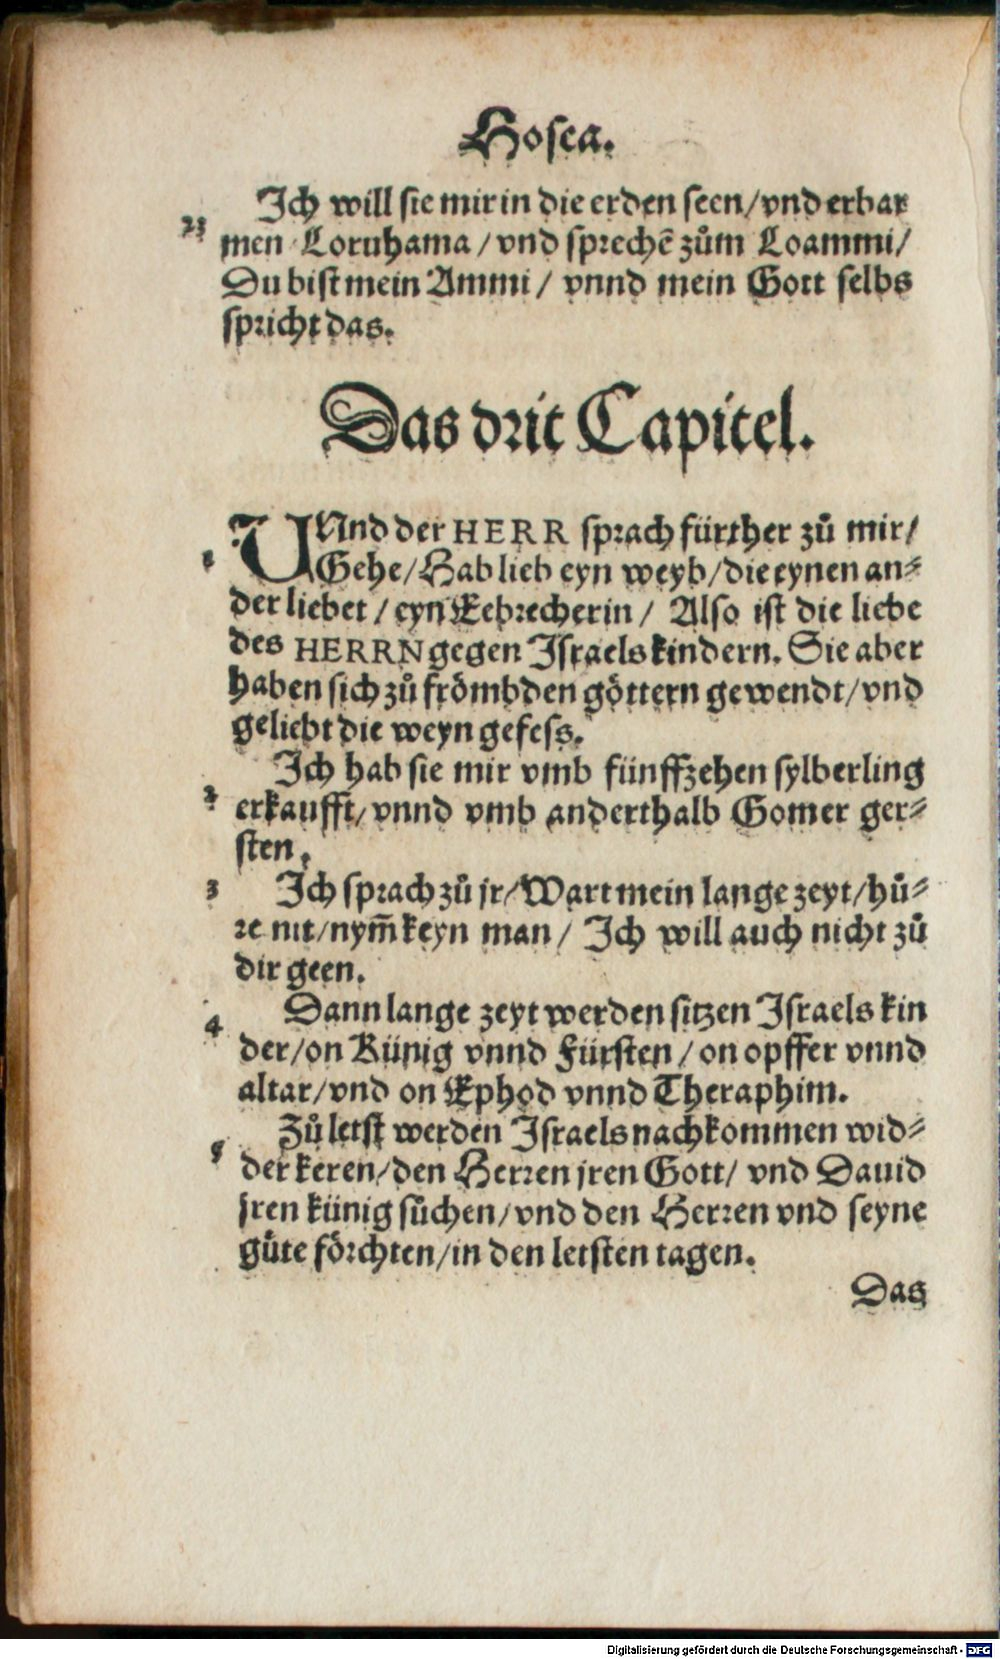 Hosea.
Ich will sie mir in die erden seen/vnd erbar
23 men Loruhama/vnd sprechẽ zům Loammi/
Du bist mein Ammi/ vnnd mein Gott selbs
spricht das.
Das drit Capitel.
VNnd der HERR sprach fürther zů mir/
1 Gehe/Hab lieb eyn weyb/die eynen an⸗
der liebet/eyn Eebrecherin/ Also ist die liebe
des HERRN gegen Israels kindern. Sie aber
haben sich zů frömbden göttern gewendt/vnd
geliebt die weyn gefess.
Ich hab sie mir vmb fünffzehen sylberling
2 erkaufft/vnnd vmb anderthalb Gomer ger⸗
sten.
3 Ich sprach zů jr/Wart mein lange zeyt/hů⸗
re nit/nym̃ keyn man/ Ich will auch nicht zů
dir geen.
Dann lange zeyt werden sitzen Israels kin
4 der/on Künig vnnd Fürsten/on opffer vnnd
altar/vnd on Ephod vnnd Theraphim.
Zů letst werden Israels nachkommen wid⸗
5 der keren/den Herren jren Gott/ vnd Dauid
jren künig sůchen/vnd den Herren vnd seyne
gůte förchten/in den letsten tagen.
Das
Digitalisierung gefördert durch die Deutsche Forschungsgemeinschaft - DFG